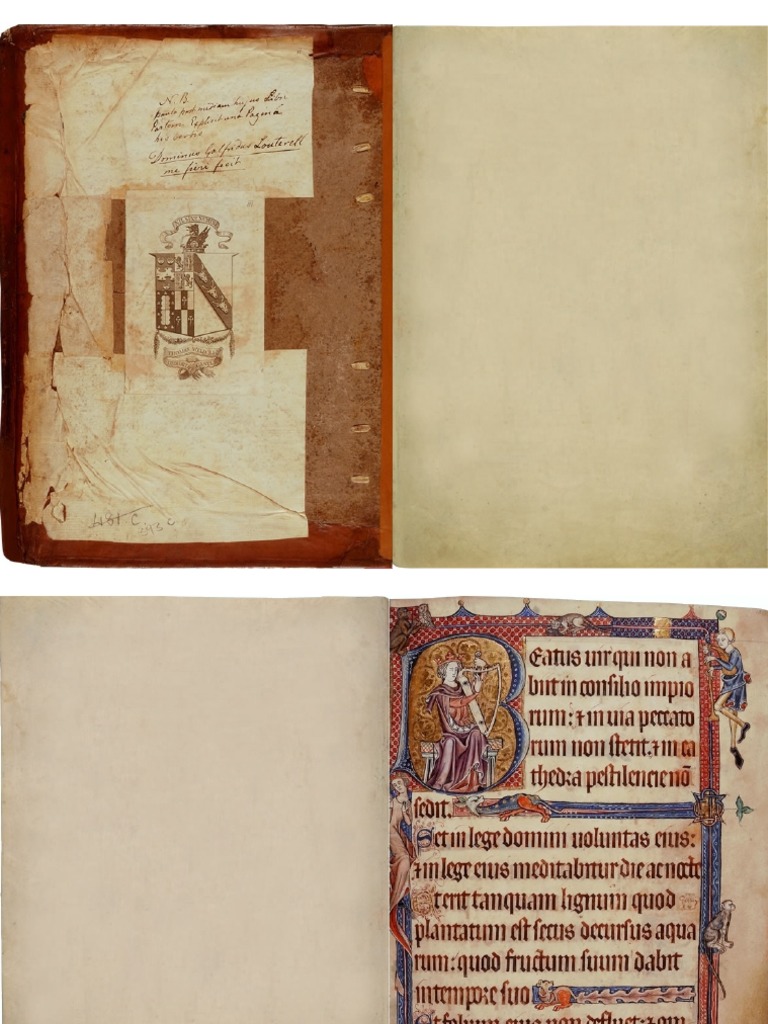 N. B.
paulo post mediam hujus Libri
Partem Explicit una Pagina
his verbis
Dominus Galfridus Louterell
me fieri fecit
Beatus uir qui non a
biit in consilio impio
rum: ⁊ in uia peccato
rum non stetit: ⁊ in ca
thedra pestilencie nō
sedit.
Set in lege domini uoluntas eius:
⁊ in lege eius meditabitur die ac nocte
Et erit tanquam lignum quod
plantatum est secus decursus aqua
rum: quod fructum suum dabit
in tempore suo
Et folium eius non defluet: ⁊ om